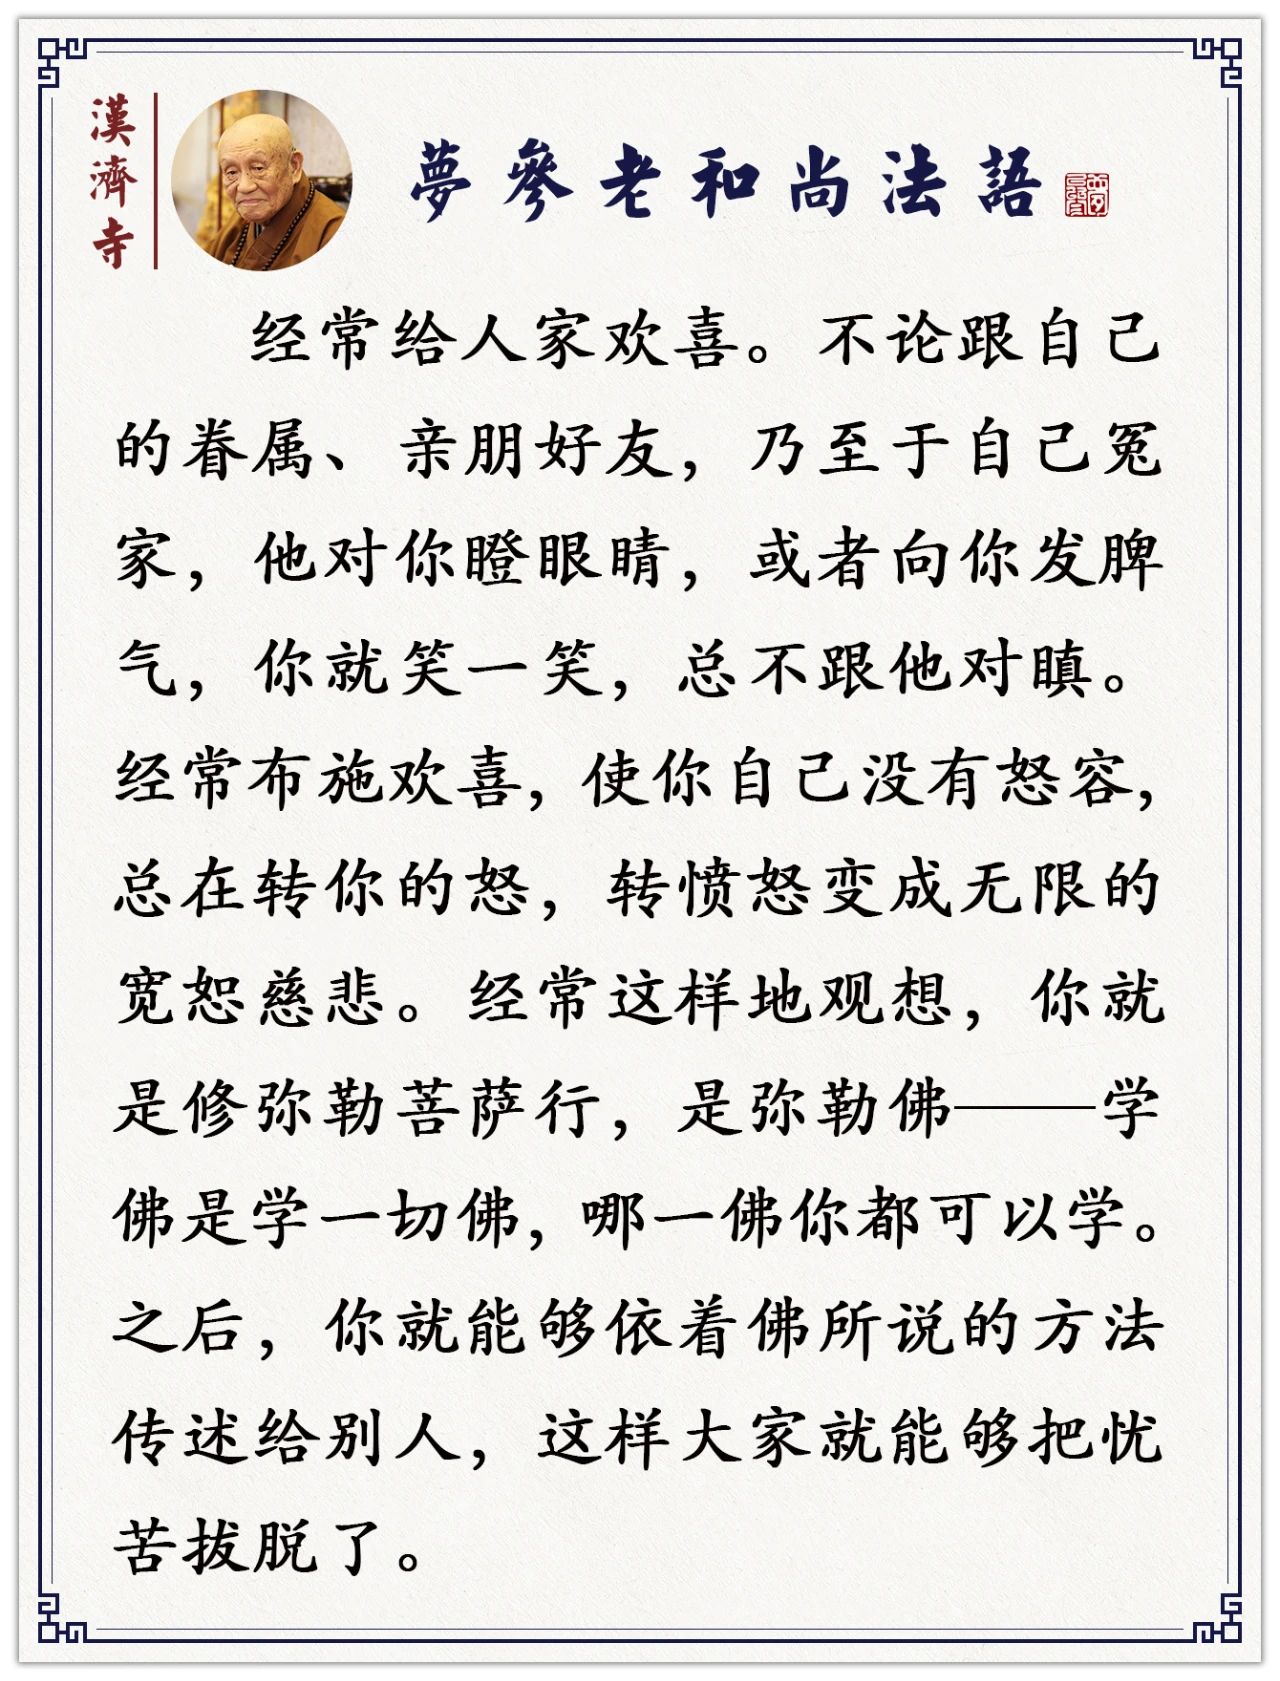 漢濟寺
夢參老和尚法語
夢參
经常给人家欢喜。不论跟自己
的眷属、亲朋好友，乃至于自己冤
家，他对你瞪眼睛，或者向你发脾
气，你就笑一笑，总不跟他对瞋。
经常布施欢喜，使你自己没有怒容，
总在转你的怒，转愤怒变成无限的
宽恕慈悲。经常这样地观想，你就
是修弥勒菩萨行，是弥勒佛——学
佛是学一切佛，哪一佛你都可以学。
之后，你就能够依着佛所说的方法
传述给别人，这样大家就能够把忧
苦拔脱了。